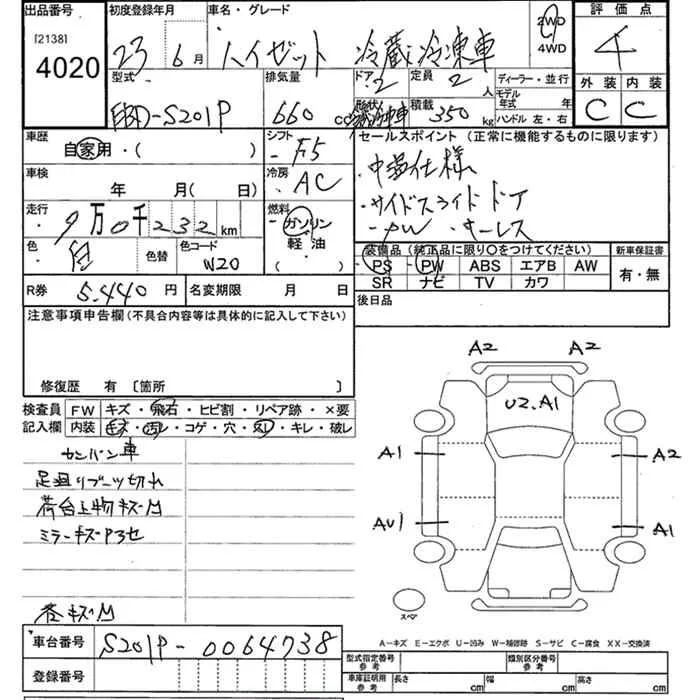 出品番号
[2138]
4020
初度登録年月
23 6月
車名・グレード
ハイゼット 冷蔵冷凍車
2WD
4WD
評価点
4
外装 内装
C C
型式
EBD-S201P
排気量
660 cc
ドア
2
定員
2 人
形状
積載
350 kg
ディーラー・並行
モデル年式 年
ハンドル 左・右
車歴
自家用・( )
シフト
F5
車検
年 月( 日)
冷房
AC
走行
9万0千232km
燃料
ガソリン
軽油
( )
色
白
色替
色コード
W20
R券
5.440円
名変期限 月 日
セールスポイント(正常に機能するものに限ります)
・中温仕様
・サイドスライドドア
・PW ・キーレス
装備品(純正品に限り〇をつけてください)
PS PW ABS エアB AW
SR ナビ TV カワ
新車保証書
有・無
後日品
注意事項申告欄(不具合内容等は具体的に記入して下さい)
修復歴 有 〔箇所 〕
検査員記入欄
FW キズ・飛石・ヒビ割・リペア跡・×要
内装 キズ・汚レ・コゲ・穴・凹・キレ・破レ
カンバン車
足廻りブーツ切れ
荷台上物キズ凹
ミラーキズ
キズ凹
A2 A2
U2.A1
A1 A2
AU1 A1
スペア
A-キズ E-エクボ U-凹み W-補修跡 S-サビ C-腐食 XX-交換済
車台番号
S201P-0064738
登録番号
型式指定番号 参考
類別区分番号 参考
車庫証明用 参考 長さ cm 幅 cm 高さ cm